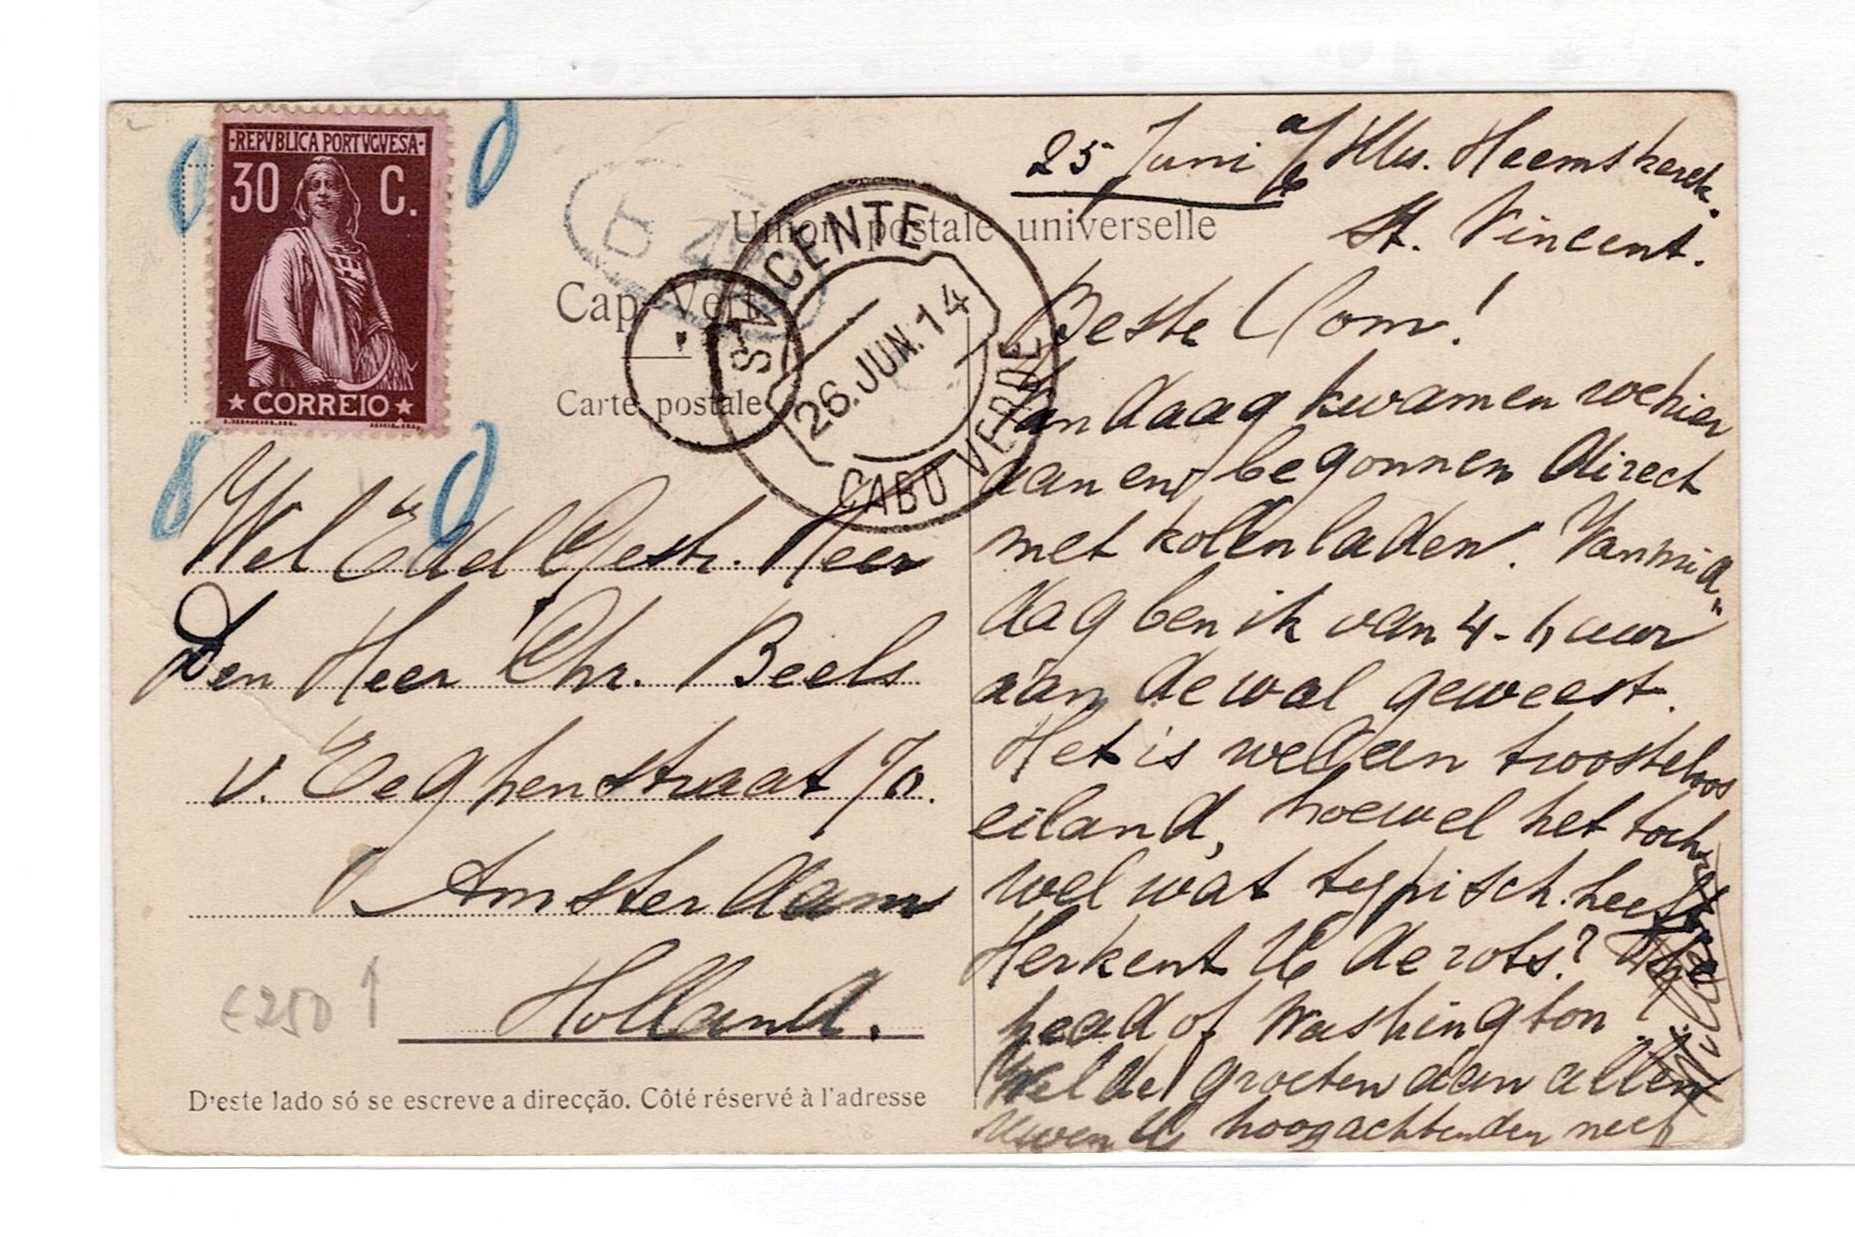 -REPVBLICA PORTVGVESA-
30 C.
★ CORREIO ★
Union postale universelle
Cap-Vert
Carte postale
S. VICENTE
26.JUN.14
CABO VERDE
Wel Edel Gestr. Heer
Den Heer Chr. Beels
v. Eeghenstraat
Amsterdam
Holland.
€250 ↑
D'este lado só se escreve a direcção. Côté réservé à l'adresse
25 Juni a/b Hms. Heemskerck.
St. Vincent.
Beste Oom!
Vandaag kwamen we hier
aan en begonnen direct
met kolenladen. Vanmid„
dag ben ik van 4-6 uur
aan de wal geweest.
Het is wel een troosteloos
eiland, hoewel het toch
wel wat typisch heeft.
Herkent U de rots? The
head of Washington!
Vele groeten aan allen
Uwen U hoogachtenden neef